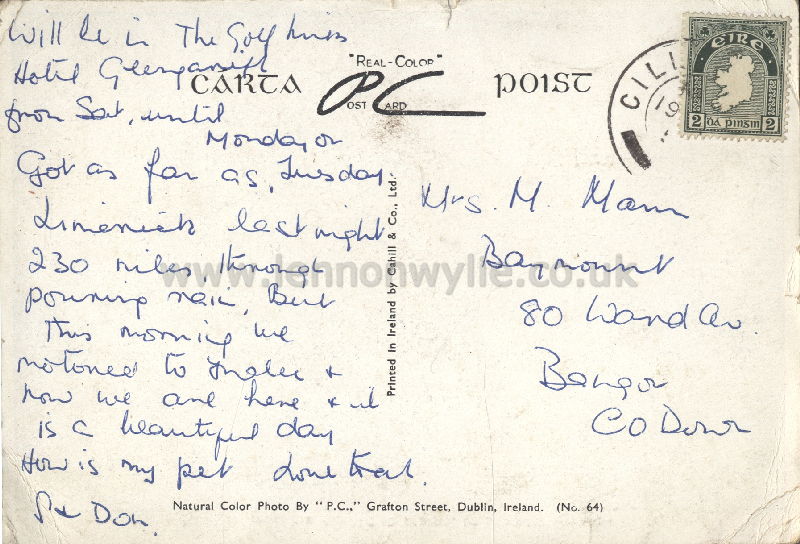 Will be in The Golf Links
Hotel Glengariff
from Sat, until
Monday or
Got as far as Tuesday
Limerick last night
230 miles, through
pouring rain, But
this morning we
motored to Tralee +
now we are here + it
is a beautiful day
How is my pet
Don.
CARTA
"REAL-COLOR"
POST CARD
POIST
Printed in Ireland by Cahill & Co., Ltd.
CILL
19
EIRE
2 DÁ PINGIN 2
Mrs. M. Mann
Baymount
80 Ward Av.
Bangor
CO Down
www.lennonwylie.co.uk
Natural Color Photo By "P.C.," Grafton Street, Dublin, Ireland. (No. 64)